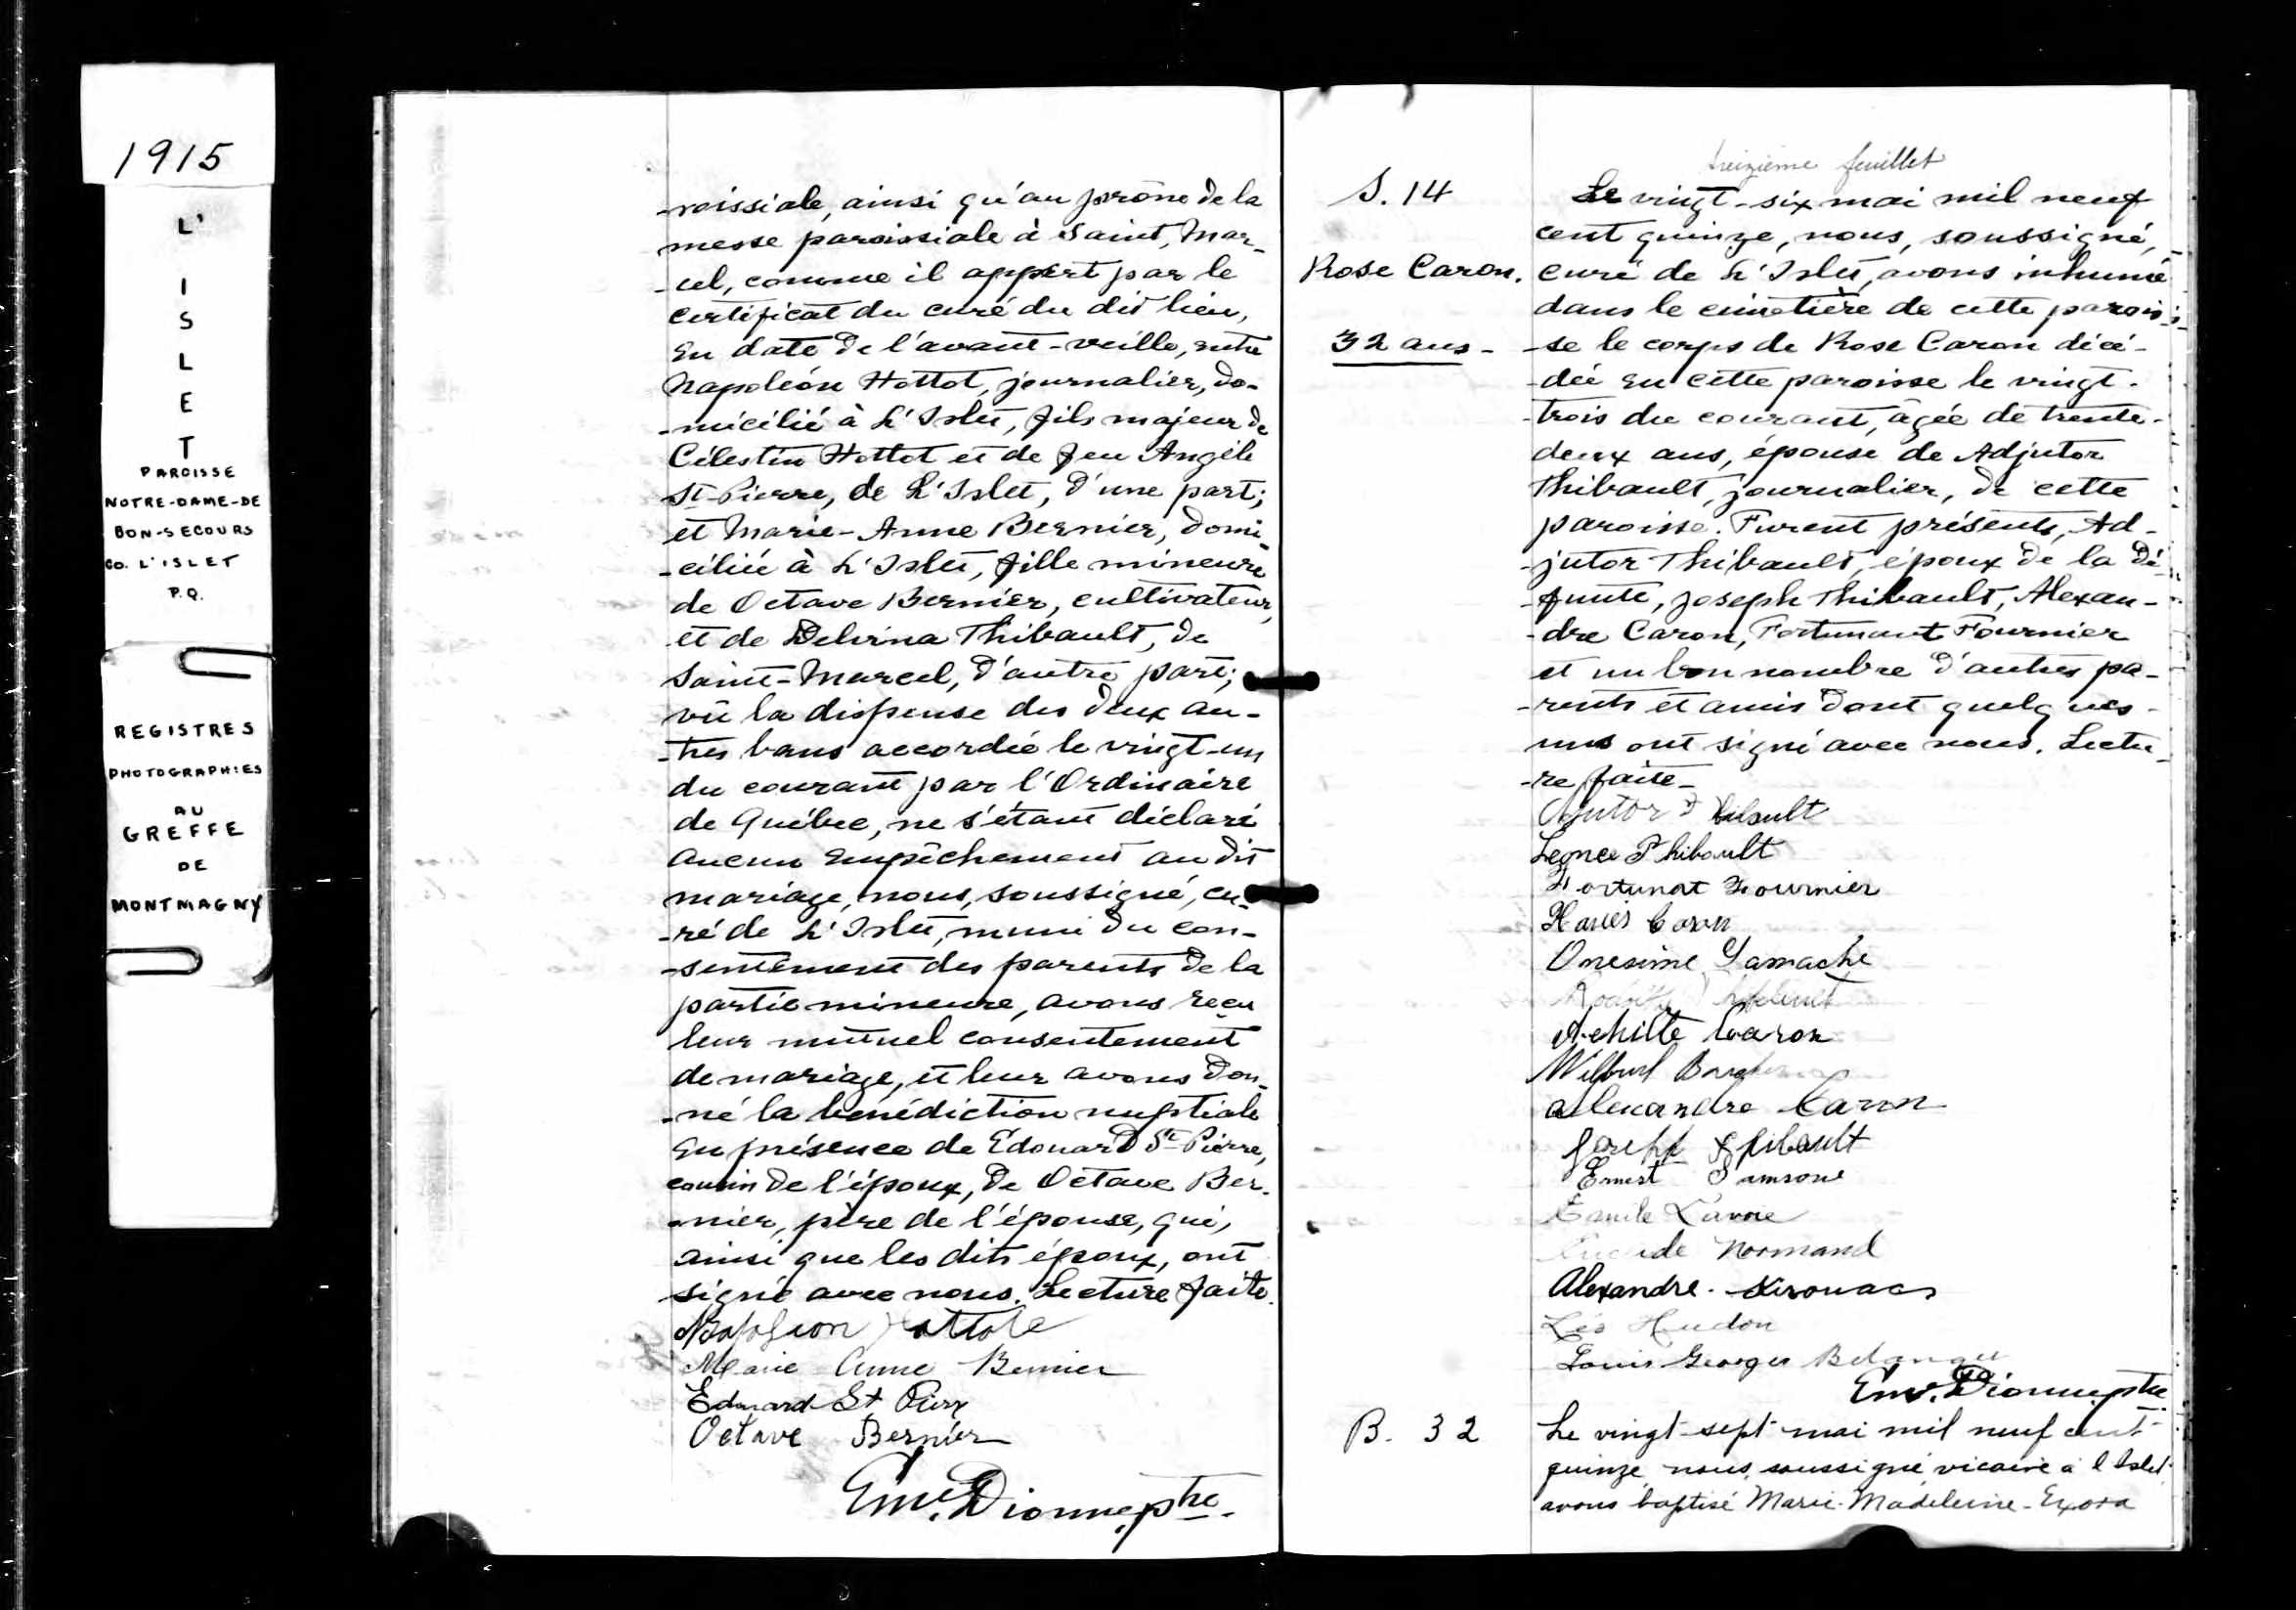 1915
L'
I
S
L
E
T
PAROISSE
NOTRE-DAME-DE
BON-SECOURS
CO. L'ISLET
P.Q.
REGISTRES
PHOTOGRAPHIES
AU
GREFFE
DE
MONTMAGNY
-roissiale, ainsi qu'au prône de la
messe paroissiale à Saint, Mar-
-cel, comme il appert par le
certificat du curé du dit lieu,
en date de l'avant-veille, entre
Napoléon Hottot, journalier, do-
-micilié à L'Islet, fils majeur de
Célestin Hottot et de feu Angèle
St-Pierre, de L'Islet, d'une part;
et Marie-Anne Bernier, domi-
-ciliée à L'Islet, fille mineure
de Octave Bernier, cultivateur,
et de Delvina Thibault, de
Saint-Marcel, d'autre part;
vû la dispense des deux au-
-tres bans accordée le vingt-un
du courant par l'Ordinaire
de Québec, ne s'étant déclaré
aucun empêchement au dit
mariage, nous, soussigné, cu-
-ré de L'Islet, muni du con-
-sentement des parents de la
partie mineure, avons reçu
leur mutuel consentement
de mariage, et leur avons don-
-né la bénédiction nuptiale
en présence de Édouard St-Pierre,
cousin de l'époux, de Octave Ber-
-nier, père de l'épouse, qui,
ainsi que les dits époux, ont
signé avec nous. Lecture faite.
Napoleon Hottote
Marie Anne Bernier
Edouard St Pierre
Octave Bernier
Em. Dionne, ptre.
treizième feuillet
S. 14
Rose Caron.
32 ans-
Le vingt-six mai mil neuf
cent quinze, nous, soussigné,
curé de L'Islet, avons inhumé
dans le cimetière de cette parois-
-se le corps de Rose Caron décé-
-dée en cette paroisse le vingt-
-trois du courant, âgée de trente-
deux ans, épouse de Adjutor
Thibault, journalier, de cette
paroisse. Furent présents, Ad-
-jutor Thibault, époux de la dé-
-funte, Joseph Thibault, Alexan-
-dre Caron, Fortunant Fournier
et un bon nombre d'autres pa-
-rents et amis dont quelques-
uns ont signé avec nous. Lectu-
-re faite-
Ajutor Thibault
Leonce Thibault
Fortunat Fournier
Xavier Caron
Onesime Gamache
Achille Caron
Alexandre Caron
Joseph Thibault
Ernest Samsone
Emile Lavoie
Normand
Alexandre. Kirouacs
Léo Hudon
Louis Georges Belanger
Em. Dionne, ptre
B. 32
Le vingt-sept mai mil neuf cent-
quinze nous, soussigné, vicaire à l'Islet
avons baptisé Marie-Madeleine-Exora